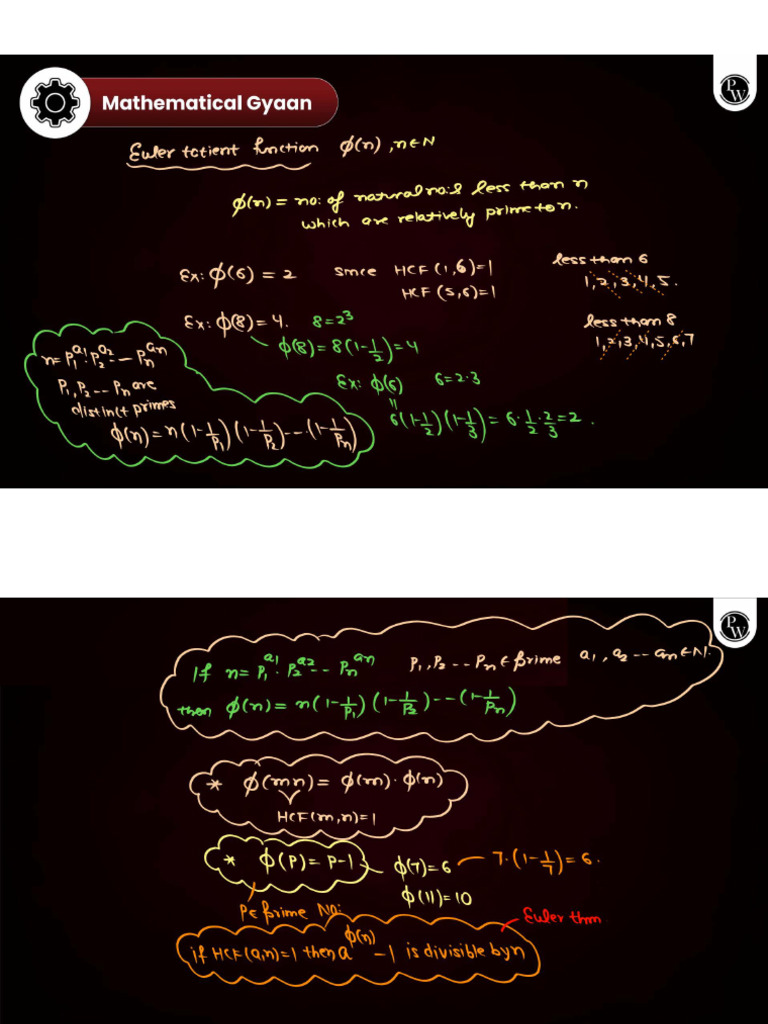 Mathematical Gyaan
PW
Euler totient function ϕ(n), n∈N
ϕ(n) = no: of natural no:s less than n
which are relatively prime to n.
Ex: ϕ(6) = 2 since HCF(1,6)=1
HCF(5,6)=1
less than 6
1,2,3,4,5.
Ex: ϕ(8)=4. 8=2³
ϕ(8)=8(1-1/2)=4
less than 8
1,2,3,4,5,6,7
Ex: ϕ(6) 6=2·3
=
6(1-1/2)(1-1/3)=6·1/2·2/3=2.
n=P₁^a1·P₂^a2 --- Pₙ^an
P₁,P₂--- Pₙ are
distinct primes
ϕ(n)=n(1-1/P₁)(1-1/P₂)---(1-1/Pₙ)
PW
If n=P₁^a1·P₂^a2--- Pₙ^an P₁,P₂--- Pₙ∈Prime a₁,a₂---aₙ∈N.
then ϕ(n)=n(1-1/P₁)(1-1/P₂)---(1-1/Pₙ)
* ϕ(mn)=ϕ(m)·ϕ(n)
HCF(m,n)=1
* ϕ(P)=P-1 ϕ(7)=6 7·(1-1/7)=6.
ϕ(11)=10
P∈Prime No:
Euler thm
if HCF(a,n)=1 then a^ϕ(n) -1 is divisible by n